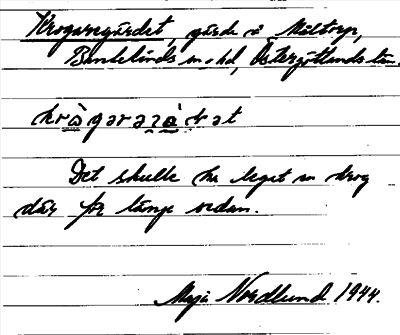 Krogaregärdet, gärde å Mältorp,
Bankekinds sn o hd, Östergötlands län.
Det skulle ha legat en krog
där för länge sedan.
Maja Nordlund 1944.